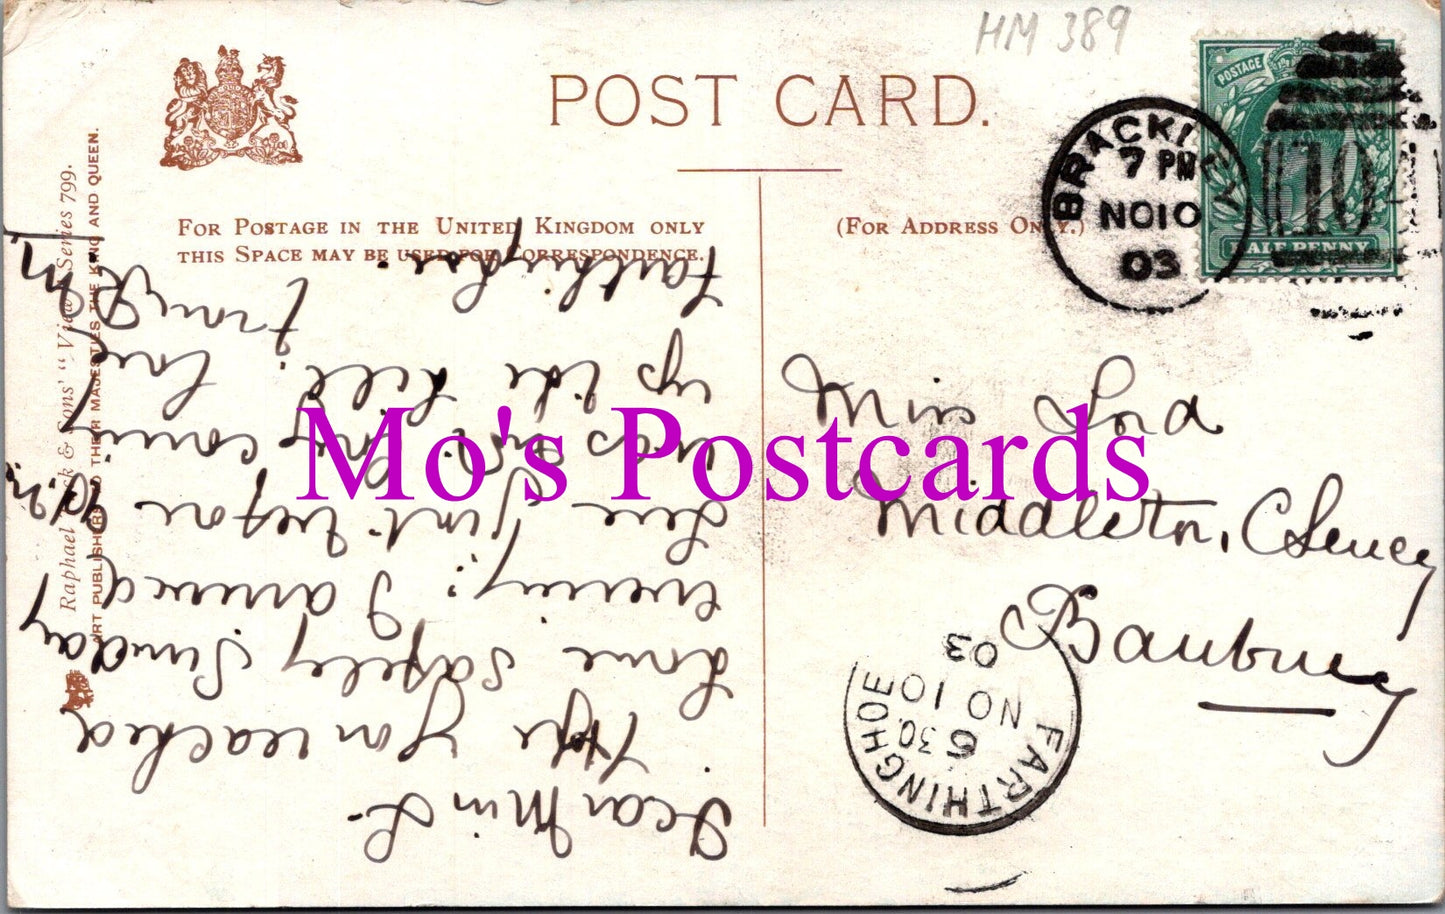 HM 389
POST CARD.
POSTAGE
HALF PENNY
BRACKLEY
7 PM
NO 10
03
FOR POSTAGE IN THE UNITED KINGDOM ONLY
THIS SPACE MAY BE USED FOR CORRESPONDENCE.
(FOR ADDRESS ONLY.)
Raphael Tuck & Sons' "View" Series 799.
ART PUBLISHERS TO THEIR MAJESTIES THE KING AND QUEEN.
Dear Miss L.
Hope you reached
home safely Sunday
evening. I arrived
here just before
was not
up the hill.
Farthinghoe.
love
from
Miss Lord
Middleton, Cheney
Banbury
FARTHINGHOE
6 30.
NO 10
03
Mo's Postcards